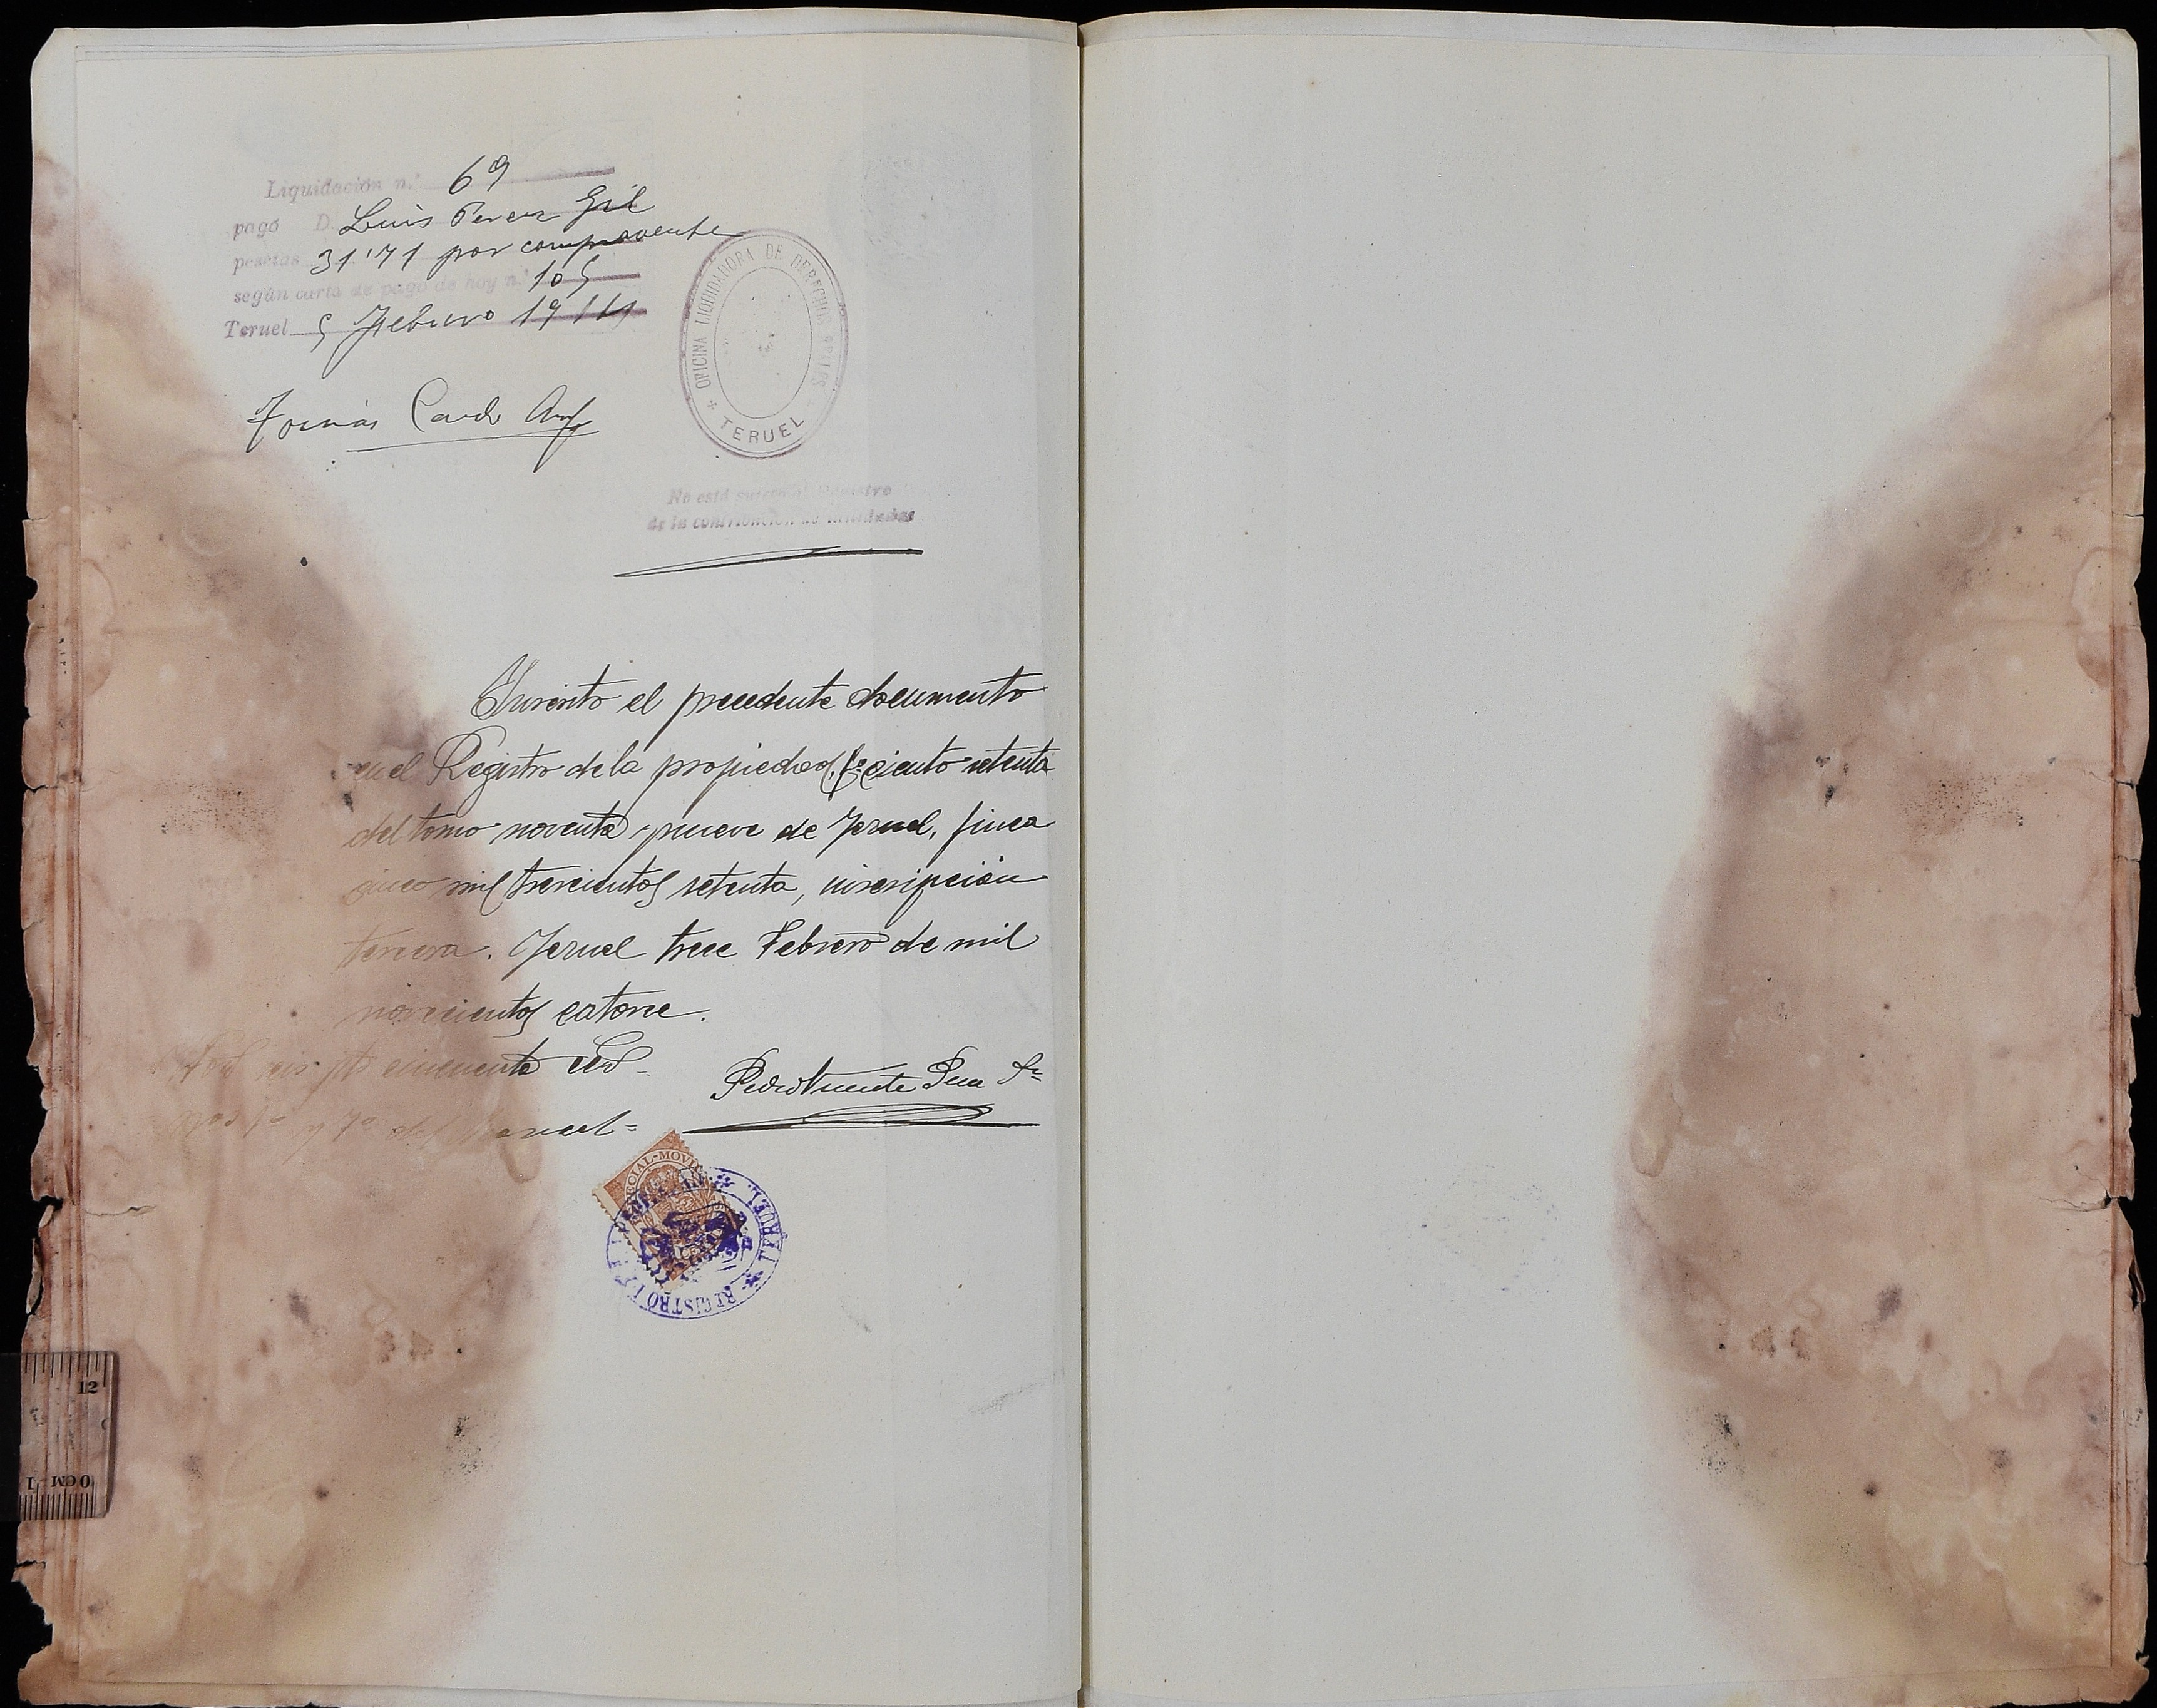 Liquidación n.º 69
pagó D. Luis Perez Gil
pesetas 31'71 por compraventa
según carta de pago de hoy n.º 105
Teruel 5 Febrero 1914
Tomás
OFICINA LIQUIDADORA DE DERECHOS REALES
TERUEL
No está sujeto al Registro
de la contribución de utilidades
Inscrito el precedente documento
en el Registro de la propiedad, fº ciento setenta
del tomo noventa y nueve de Teruel, finca
cinco mil trescientos setenta, inscripción
tercera. Teruel trece Febrero de mil
novecientos catorce.
seis pts cincuenta cts
Pedro Vicente
y 7º del Arancel=
ESPECIAL-MOVIL
REGISTRO DE LA PROPIEDAD
TERUEL
12
0 CM 1